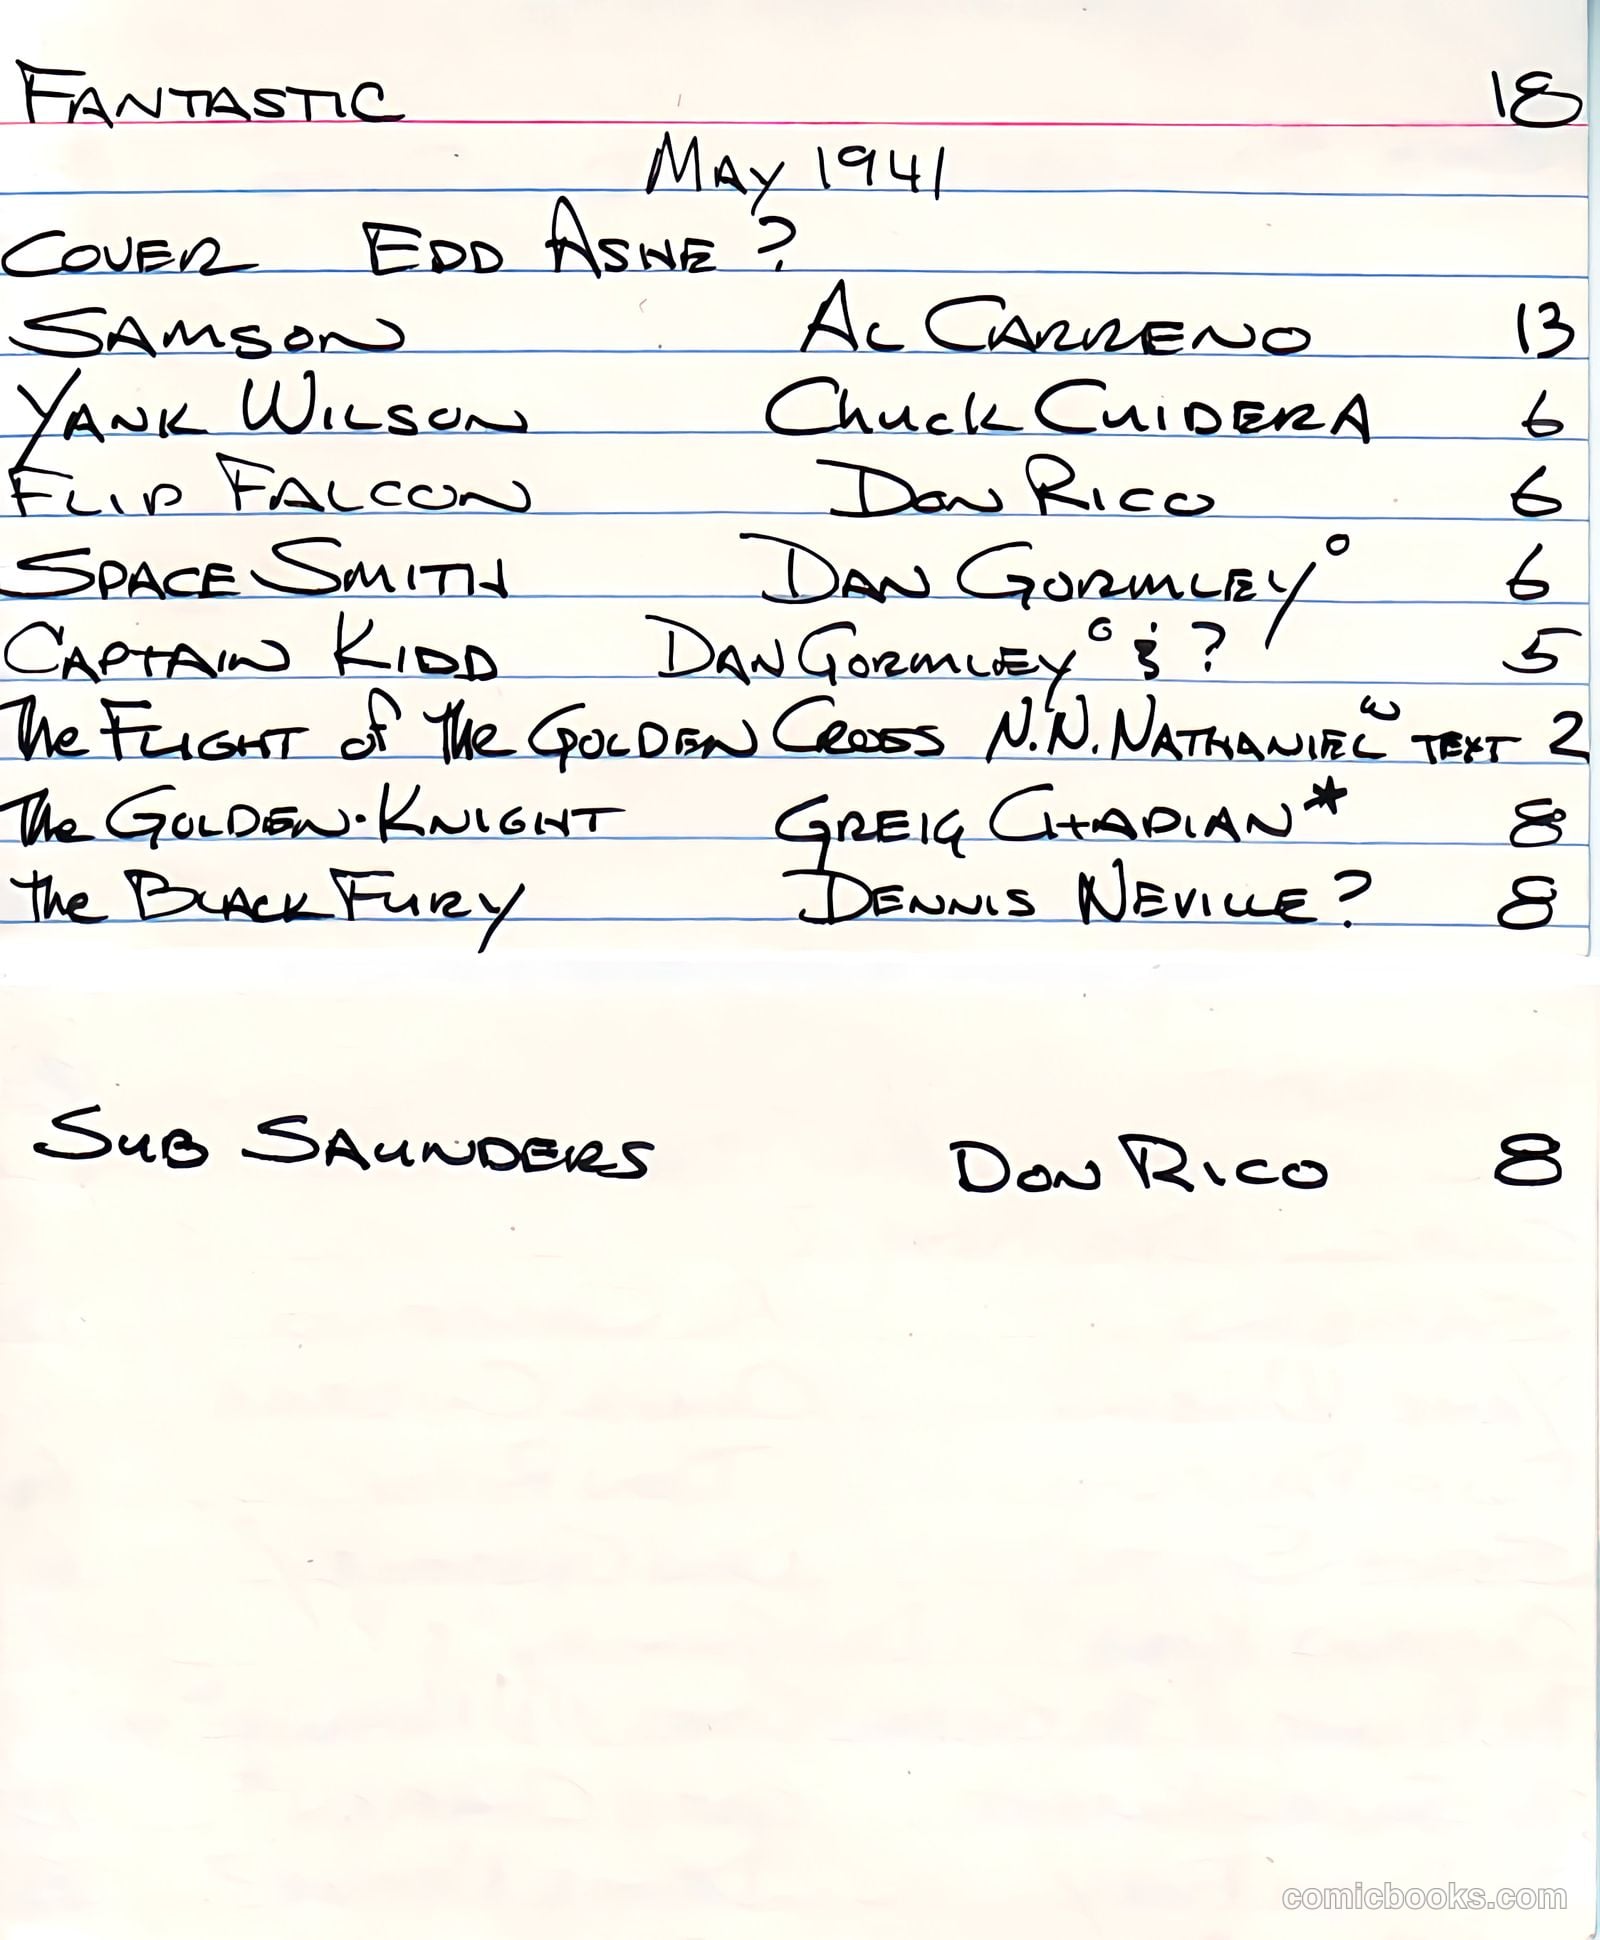 FANTASTIC 18
MAY 1941
COVER EDD ASHE ?
SAMSON AL CARRENO 13
YANK WILSON Chuck CUIDERA 6
FLIP FALCON DON RICO 6
SPACE SMITH DAN GORMLEY° 6
CAPTAIN KIDD DAN GORMLEY° & ? 5
The FLIGHT of The GOLDEN CROSS N.N. NATHANIEL ω TEXT 2
The GOLDEN KNIGHT GREIG CHAPIAN* 8
The BLACK FURY DENNIS NEVILLE? 8
SUB SAUNDERS DON RICO 8
comicbooks.com